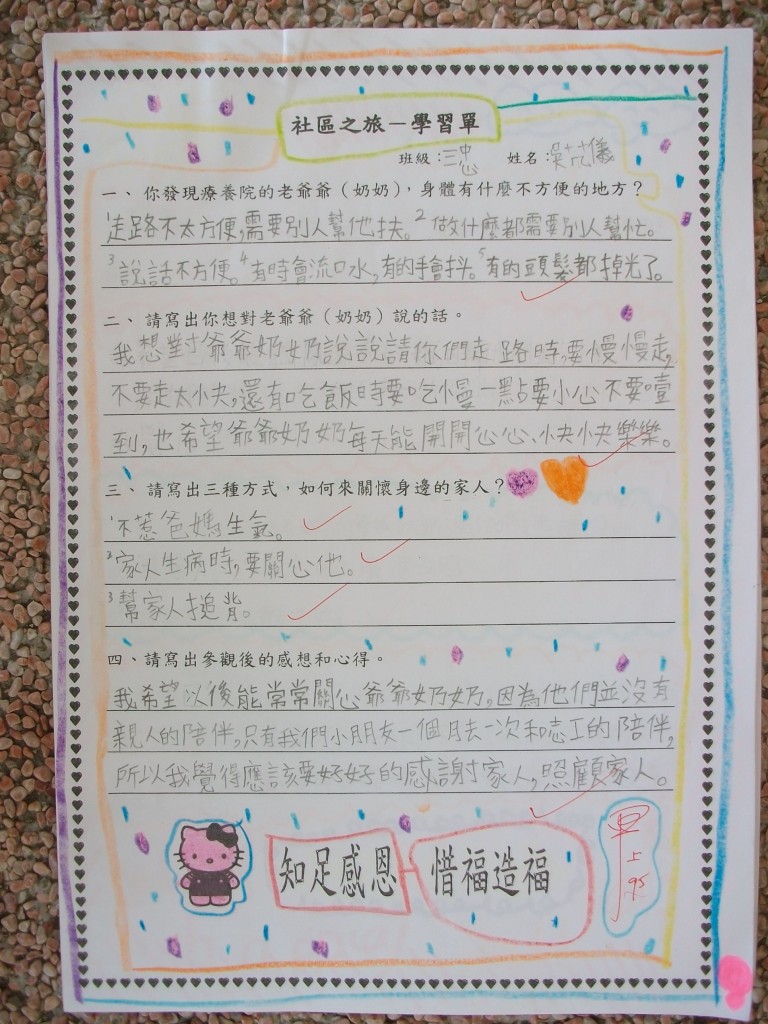 社區之旅－學習單
班級：三忠 姓名：吳芃儀
一、你發現療養院的老爺爺（奶奶），身體有什麼不方便的地方？
1走路不太方便,需要別人幫他扶。2做什麼都需要別人幫忙。
3說話不方便。4有時會流口水,有的手會抖。5有的頭髮都掉光了。
二、請寫出你想對老爺爺（奶奶）說的話。
我想對爺爺奶奶說說請你們走路時,要慢慢走,
不要走太快,還有吃飯時要吃慢一點要小心不要噎
到,也希望爺爺奶奶每天能開開心心、快快樂樂。
三、請寫出三種方式，如何來關懷身邊的家人？
1不惹爸媽生氣。
2家人生病時,要關心他。
3幫家人搥背。
四、請寫出參觀後的感想和心得。
我希望以後能常常關心爺爺奶奶,因為他們並沒有
親人的陪伴,只有我們小朋友一個月去一次和志工的陪伴,
所以我覺得應該要好好的感謝家人,照顧家人。
知足感恩 惜福造福
上
95